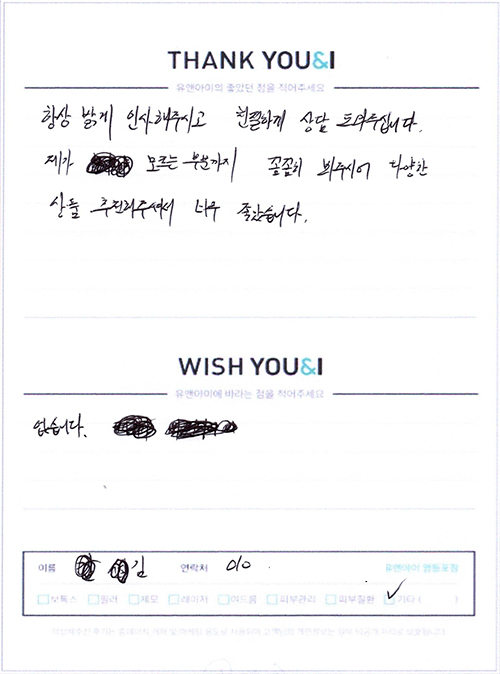 THANK YOU&I
유앤아이의 좋았던 점을 적어주세요
항상 밝게 인사해주시고 친절하게 상담 도와주십니다.
제가 모르는 부분까지 꼼꼼히 봐주시어 다양한
시술 추천해주셔서 너무 좋았습니다.
WISH YOU&I
유앤아이에 바라는 점을 적어주세요
없습니다.
이름 김 연락처 010 유앤아이 영등포점
보톡스 필러 제모 레이저 여드름 피부관리 피부질환 기타 ( )